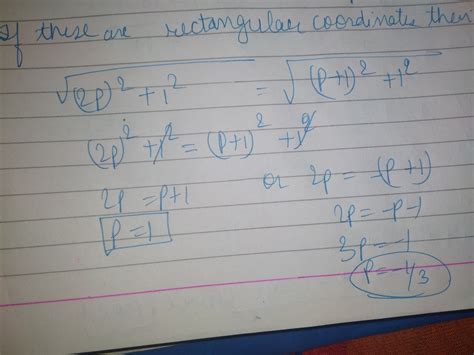 If these are rectangular coordinates then
√(2p)² + 1² = √(p+1)² + 1²
(2p)² + 1² = (p+1)² + 1²
2p = p+1 or 2p = -(p+1)
p = 1 2p = -p-1
3p = -1
p = -1/3